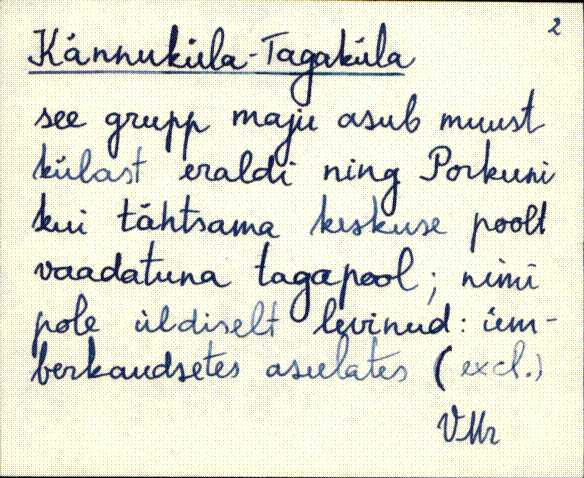 2
Kännuküla-Tagaküla
see grupp maju asub muust
külast eraldi ning Porkuni
kui tähtsama keskuse poolt
vaadatuna tagapool; nimi
pole üldiselt levinud: üm-
berkaudsetes asulates (excl.)
VMr